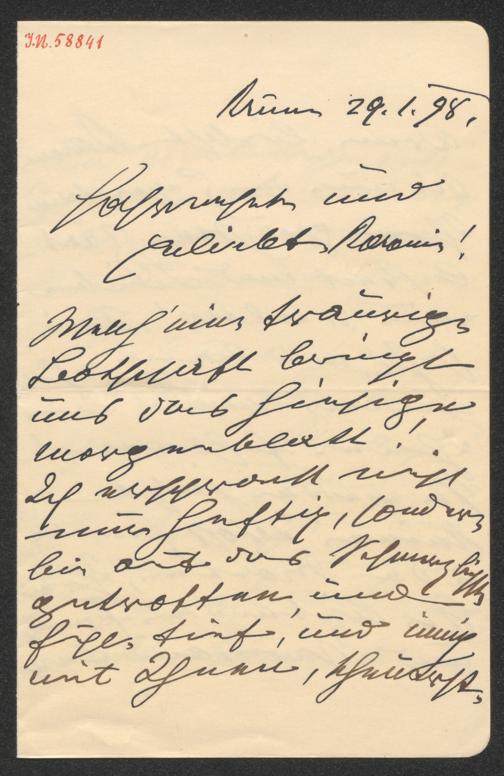 J.N. 58841
Brünn 29.1.98.
Hochverehrte und
geliebte Baronin!
Welch' eine traurige
Botschaft bringt
uns das hiesige
Morgenblatt!
Ich erschrack nicht
nur heftig, sondern
bin auf das Schmerzlichste
getroffen, und
fühle tief, und innig
mit Ihnen, theuerste,